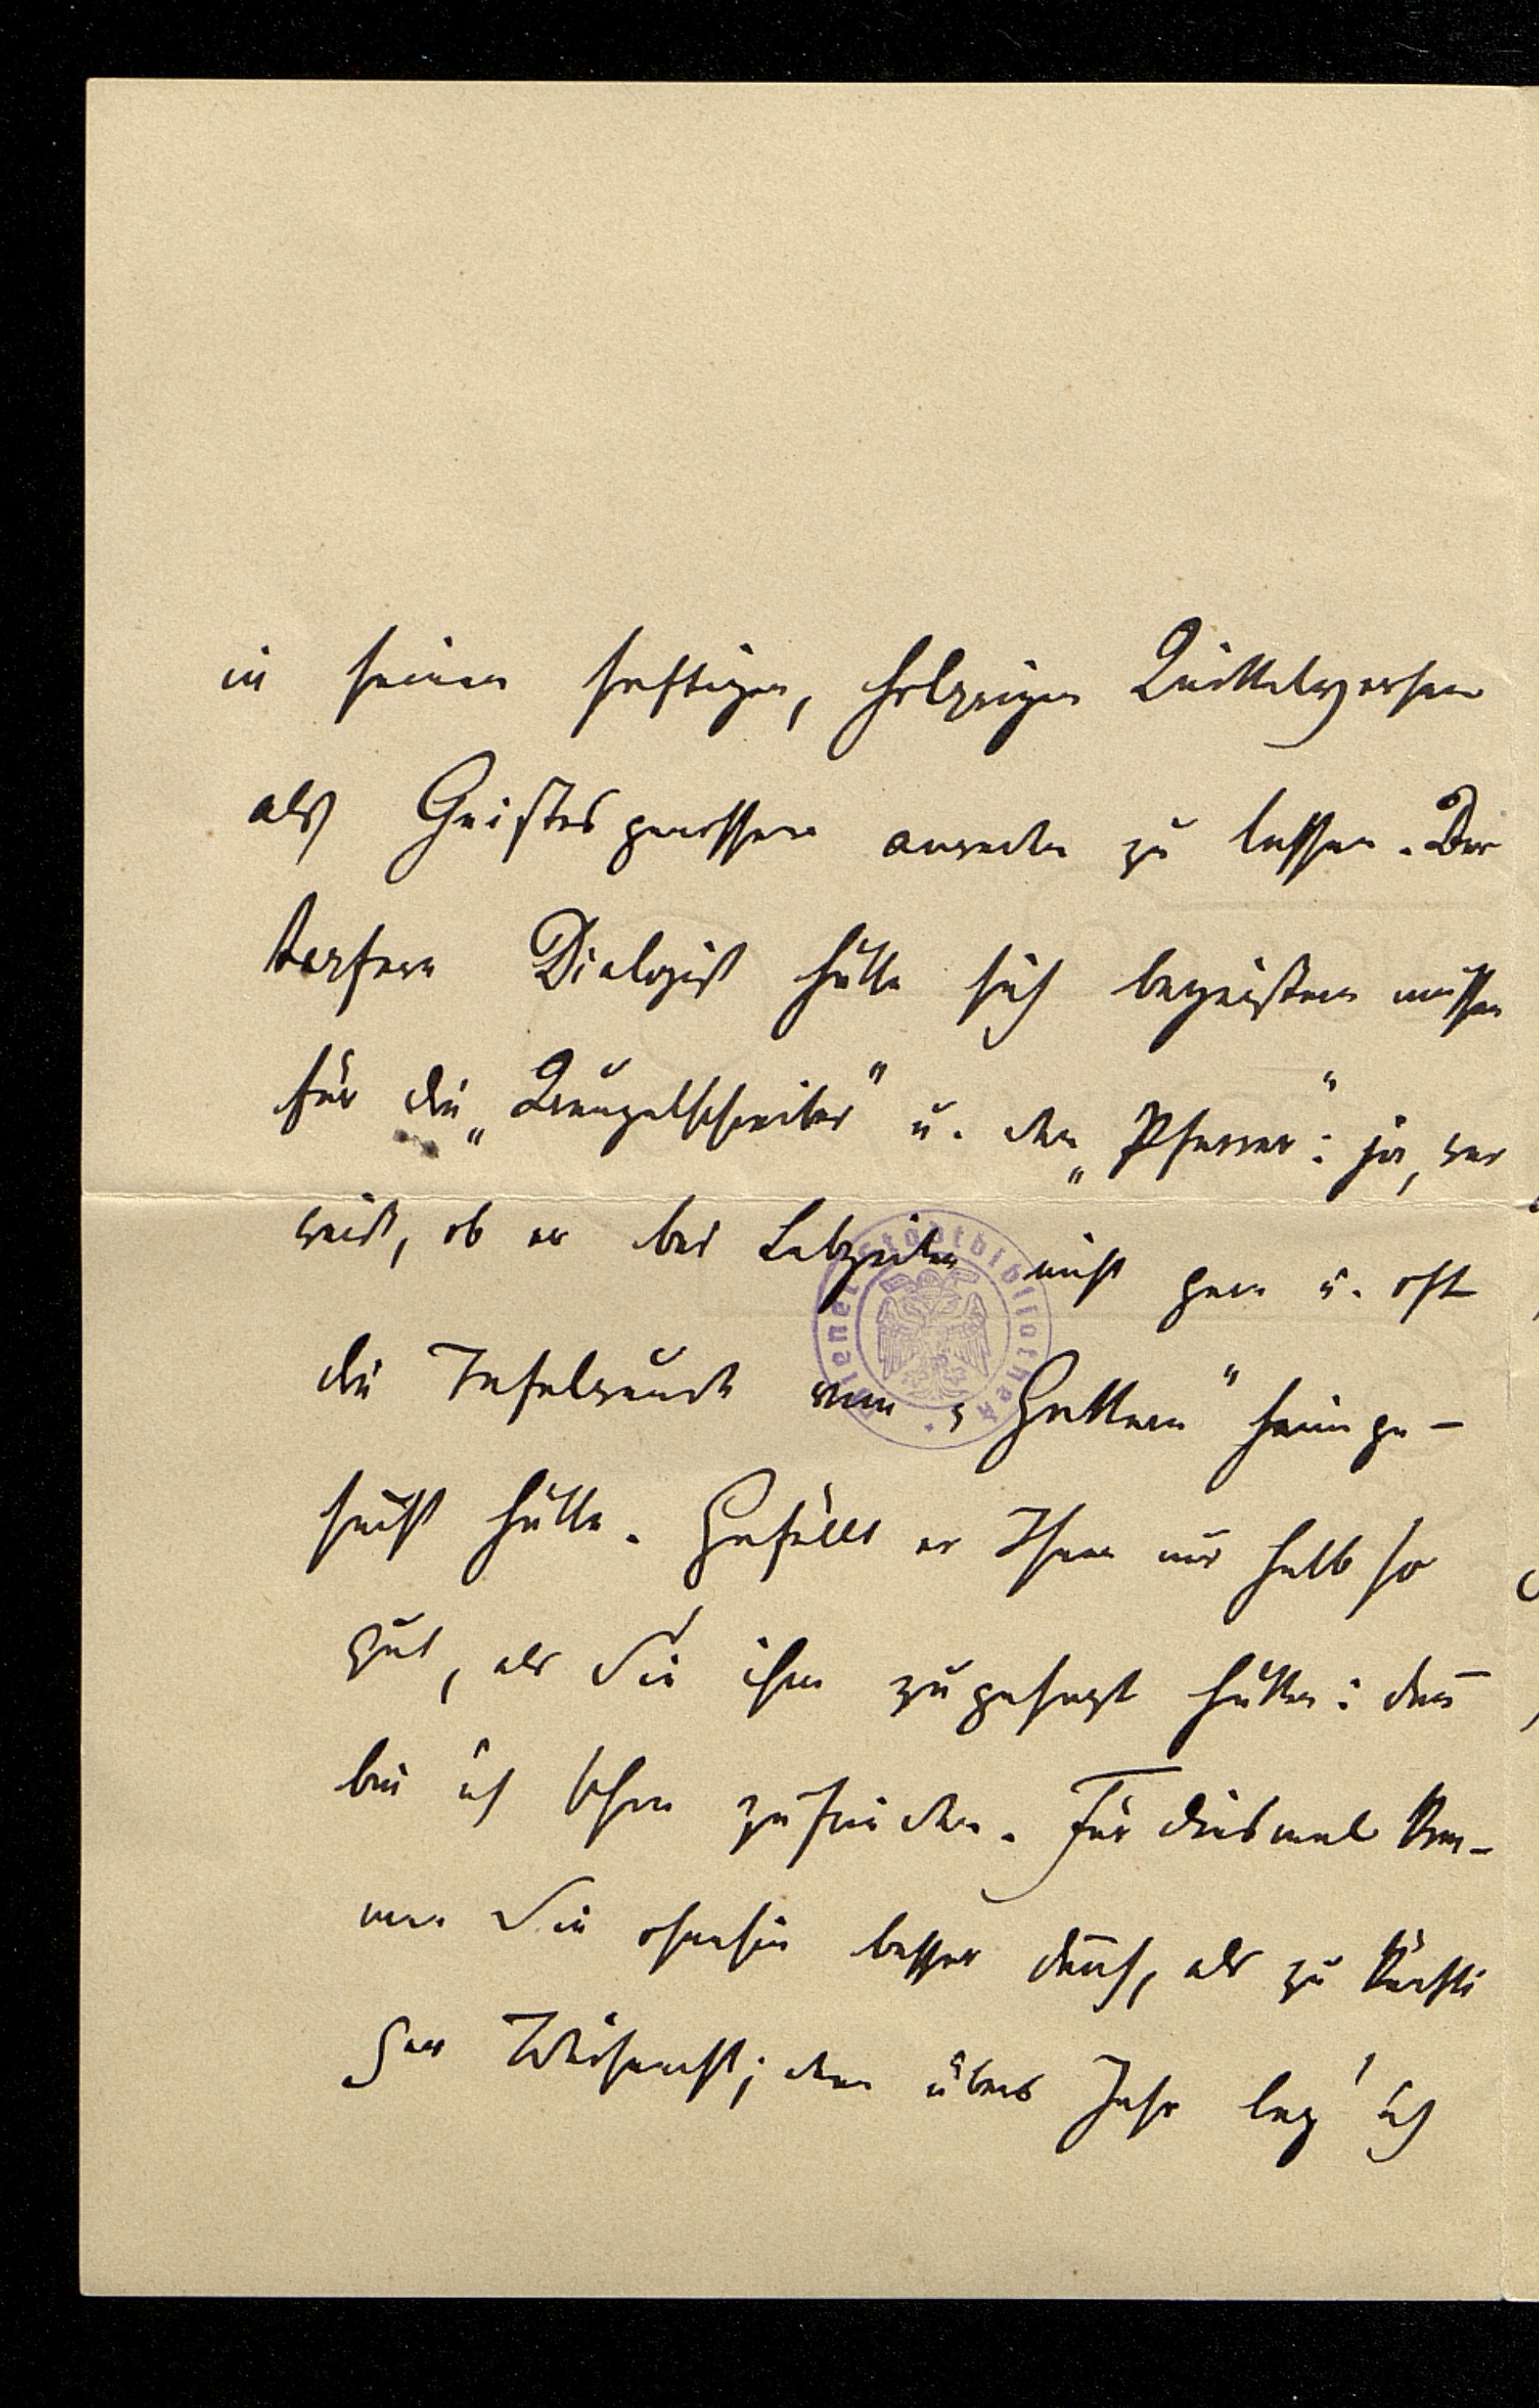 in seinen saftigen, holprigen Knittelversen
als Geistesgenossen anreden zu lassen. Der
tapfere Dialogist hätte sich begeistern müssen
für die „Kreuzelschreiber“ u. den „Pfarrer“: ja, wer
weiß, ob er bei Lebzeiten nicht gern u. oft
die Tafelrunde von „ Gattern“ heimge-
sucht hätte. Gefällt er Ihnen nur halb so
gut, als Sie ihm zugesagt hätten: dann
bin ich schon zufrieden. Für diesmal kom-
men Sie ohnehin besser durch, als zu künfti
ger Weihnacht; denn übers Jahr leg' ich
Wiener Stadtbibliothek.